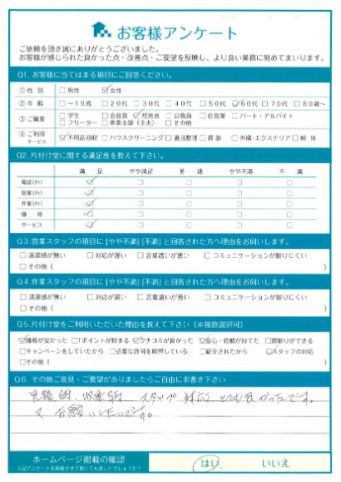 お客様アンケート
ご依頼を頂き誠にありがとうございました。
お客様が感じられた良かった点・改善点・ご要望を反映し、より良い業務に努めてまいります。
Q1. お客様に当てはまる項目にご回答ください。
① 性 別 □男性 ☑女性
② 年 齢 □～19歳 □20代 □30代 □40代 □50代 ☑60代 □70代 □80歳～
③ ご職業 □学生 □会社員 ☑経営者 □公務員 □自営業 □パート・アルバイト
□フリーター □専業主婦（主夫） □その他
④ ご利用サービス ☑不用品回収 □ハウスクリーニング □遺品整理 □買取 □外構・エクステリア □解体
Q2. 片付け堂に関する満足度を教えて下さい。
満足 やや満足 普通 やや不満 不満
電話(ｶｹ) ☑ □ □ □ □
営業(ｶｹ) ☑ □ □ □ □
作業(ｶｹ) ☑ □ □ □ □
価格 ☑ □ □ □ □
サービス ☑ □ □ □ □
Q3. 営業スタッフの項目に[やや不満][不満]と回答された方へ理由をお伺いします。
□清潔感が無い □対応が遅い □言葉遣いが悪い □コミュニケーションが取りにくい
□その他（
Q4. 作業スタッフの項目に[やや不満][不満]と回答された方へ理由をお伺いします。
□清潔感が無い □対応が遅い □言葉遣いが悪い □コミュニケーションが取りにくい
□その他（
Q5. 片付け堂をご利用いただいた理由を教えて下さい（※複数選択可）
☑価格が安かった □Tポイントが貯まる ☑クチコミが良かった ☑安心・信頼が持てた □買取りができる
□キャンペーンをしていたから □必要な許可を取得している □紹介されたから ☑スタッフの対応
□その他（
Q6. その他ご意見・ご要望がありましたらご自由にお書き下さい
見積時、収集時 スタッフ対応 とても良かったです。
又、お願いしたいです。
ホームページ掲載の確認
上記アンケートを掲載させて頂いても宜しいでしょうか？
はい いいえ